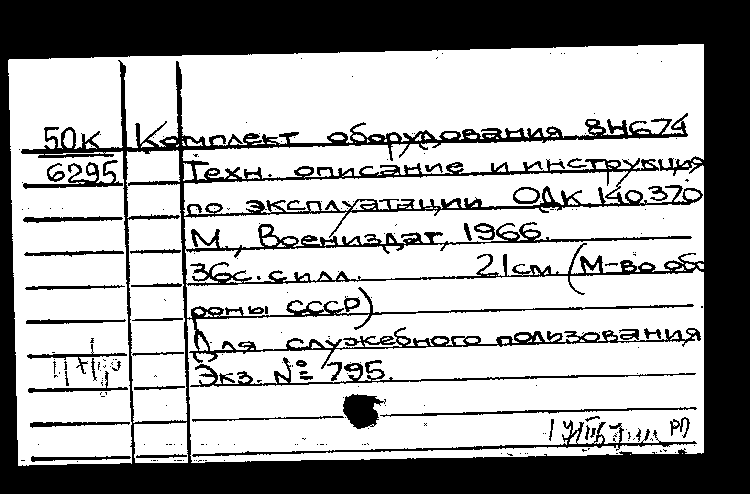 50К Комплект оборудования 8Н674
6295 Техн. описание и инструкция
по эксплуатации ОДК.140.370
М., Воениздат, 1966.
36с. с илл. 21см. (М-во обо
роны СССР)
Для служебного пользования
Экз. № 795.
РП